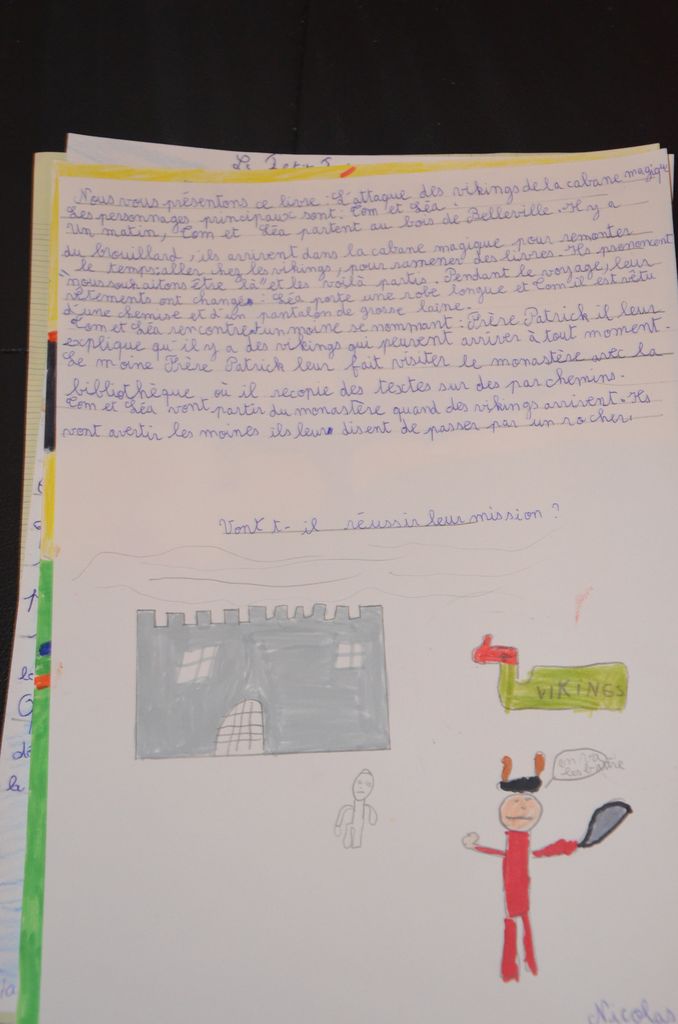 Nous vous présentons ce livre : L'attaque des vikings de la cabane magique
Les personnages principaux sont : Tom et Léa.
Un matin, Tom et Léa partent au bois de Belleville. Il y a
du brouillard, ils arrivent dans la cabane magique pour remonter
le temps : aller chez les vikings, pour ramener des livres. Ils prononcent
"nous souhaitons être là" et les voilà partis. Pendant le voyage, leur
vêtements ont changés : Léa porte une robe longue et Tom il est vêtu
d'une chemise et d'un pantalon de grosse laine.
Tom et Léa rencontrent un moine se nommant : Frère Patrick il leur
explique qu'il y a des vikings qui peuvent arriver à tout moment.
Le moine Frère Patrick leur fait visiter le monastère avec la
bibliothèque où il recopie des textes sur des parchemins.
Tom et Léa vont partir du monastère quand des vikings arrivent. Ils
vont avertir les moines ils leur disent de passer par un rocher.
Vont t-il réussir leur mission ?
VIKINGS
on va
les battre
Nicolas